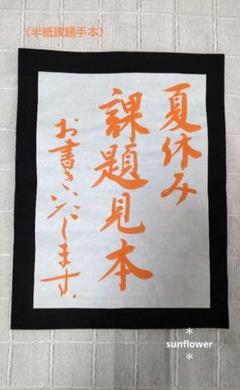 〈半紙課題手本〉
夏休み
課題見本
お書きいたします。
sunflower